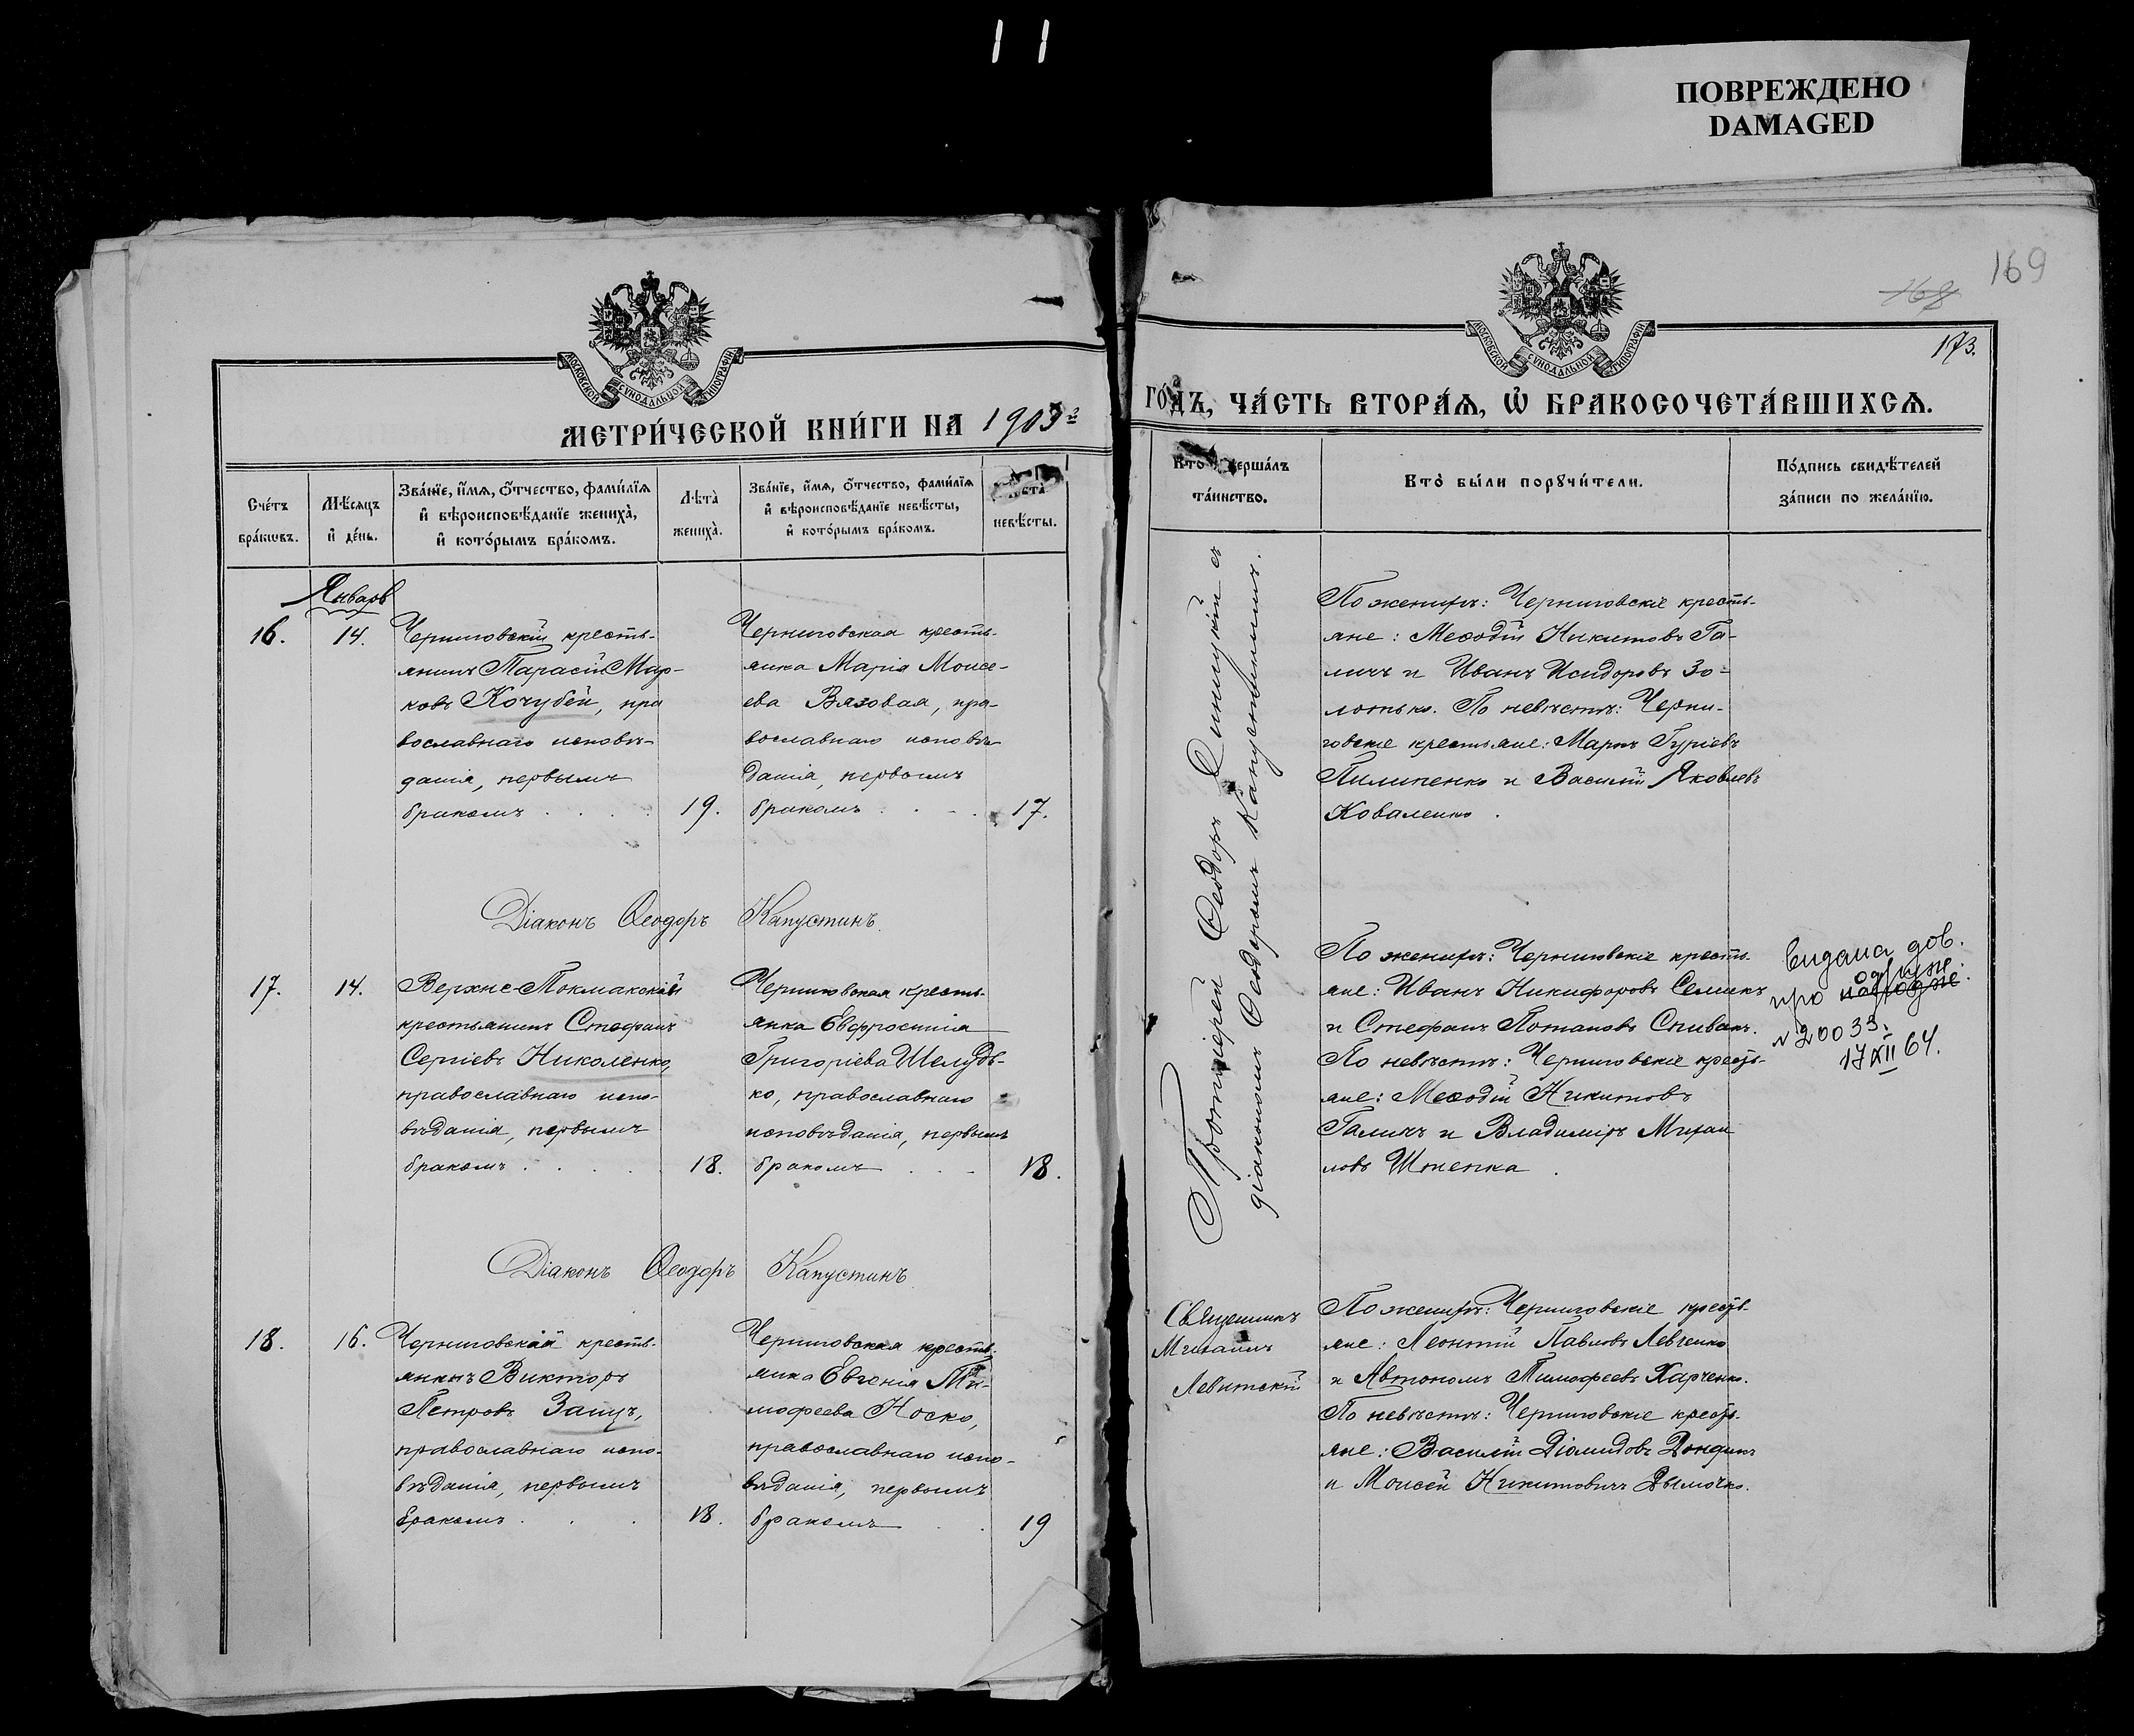 ПОВРЕЖДЕНО
DAMAGED
169
168
173.
МОСКОВСКОЙ СѴНОДАЛЬНОЙ ТИПОГРАФІИ
МОСКОВСКОЙ СѴНОДАЛЬНОЙ ТИПОГРАФІИ
МЕТРИ́ЧЕСКОЙ КНИ́ГИ НА 1903
ГО́ДЪ, ЧА́СТЬ ВТОРА́Я, Ѽ БРАКОСОЧЕТА́ВШИХСЯ.
Сче́тъ
бра́кѡвъ.
Мѣ́сяцъ
и҆ де́нь.
Зва́нїе, и҆́мя, ѻ҆́тчество, фами́лїя
и҆ вѣроисповѣ́данїе жениха̀,
и҆ кото́рымъ бра́комъ.
Лѣта̀
жениха̀.
Зва́нїе, и҆́мя, ѻ҆́тчество, фами́лїя
и҆ вѣроисповѣ́данїе невѣ́сты,
и҆ кото́рымъ бра́комъ.
Лѣта̀
невѣ́сты.
Кто̀ соверша́лъ
та́инство.
Кто̀ бы́ли порꙋчи́тели.
По́дпись свидѣ́телей
за́писи по жела́нїю.
Январь
16.
14.
Черниговскій кресть-
янинъ Тарасій Мар-
ковъ Кочубей, пра
вославнаго исповѣ-
данія, первымъ
бракомъ . . . .
19.
Черниговская кресть-
янка Марія Моисе-
ева Вязовая, пра-
вославнаго исповѣ
данія, первымъ
бракомъ . . .
17.
Протоіерей Ѳеодоръ съ
діакономъ Ѳеодоромъ Капустинымъ.
По женихѣ: Черниговскіе кресть-
яне: Меѳодій Никитовъ Га-
личъ и Иванъ Исидоровъ Зо-
лотько. По невѣстѣ: Черни-
говскіе крестьяне: Маркъ Гуріевъ
Пилипенко и Василій Яковлевъ
Коваленко.
Діаконъ Ѳеодоръ Капустинъ.
17.
14.
Верхне-Токмакскій
крестьянинъ Стефанъ
Сергіевъ Николенко,
православнаго испо-
вѣданія, первымъ
бракомъ . . . .
18.
Черниговская кресть-
янка Евфросинія
Григоріева Шелудь-
ко, православнаго
исповѣданія, первымъ
бракомъ . . .
18.
По женихѣ: Черниговскіе кресть-
яне: Иванъ Никифоровъ Семикъ
и Стефанъ Потаповъ Спивакъ.
По невѣстѣ: Черниговскіе кресть-
яне: Меѳодій Никитовъ
Галичъ и Владимиръ Михаи
ловъ Шкепка.
Видана дов.
про
№ 20033.
17 XII 64.
Діаконъ Ѳеодоръ Капустинъ
18.
16.
Черниговскій кресть-
янинъ Викторъ
Петровъ Заицъ,
православнаго испо-
вѣданія, первымъ
бракомъ . . .
18.
Черниговская кресть-
янка Евгенія Ти-
мофеева Носко,
православнаго испо-
вѣданія, первымъ
бракомъ . .
19
Священникъ
Михаилъ
Левитскій
По женихѣ: Черниговскіе кресть-
яне: Леонтій Павловъ Левченко
и Автономъ Тимофеевъ Харченко.
По невѣстѣ: Черниговскіе кресть-
яне: Василій Діомидовъ Дондикъ
и Моисей Никитовичъ Дымочко.